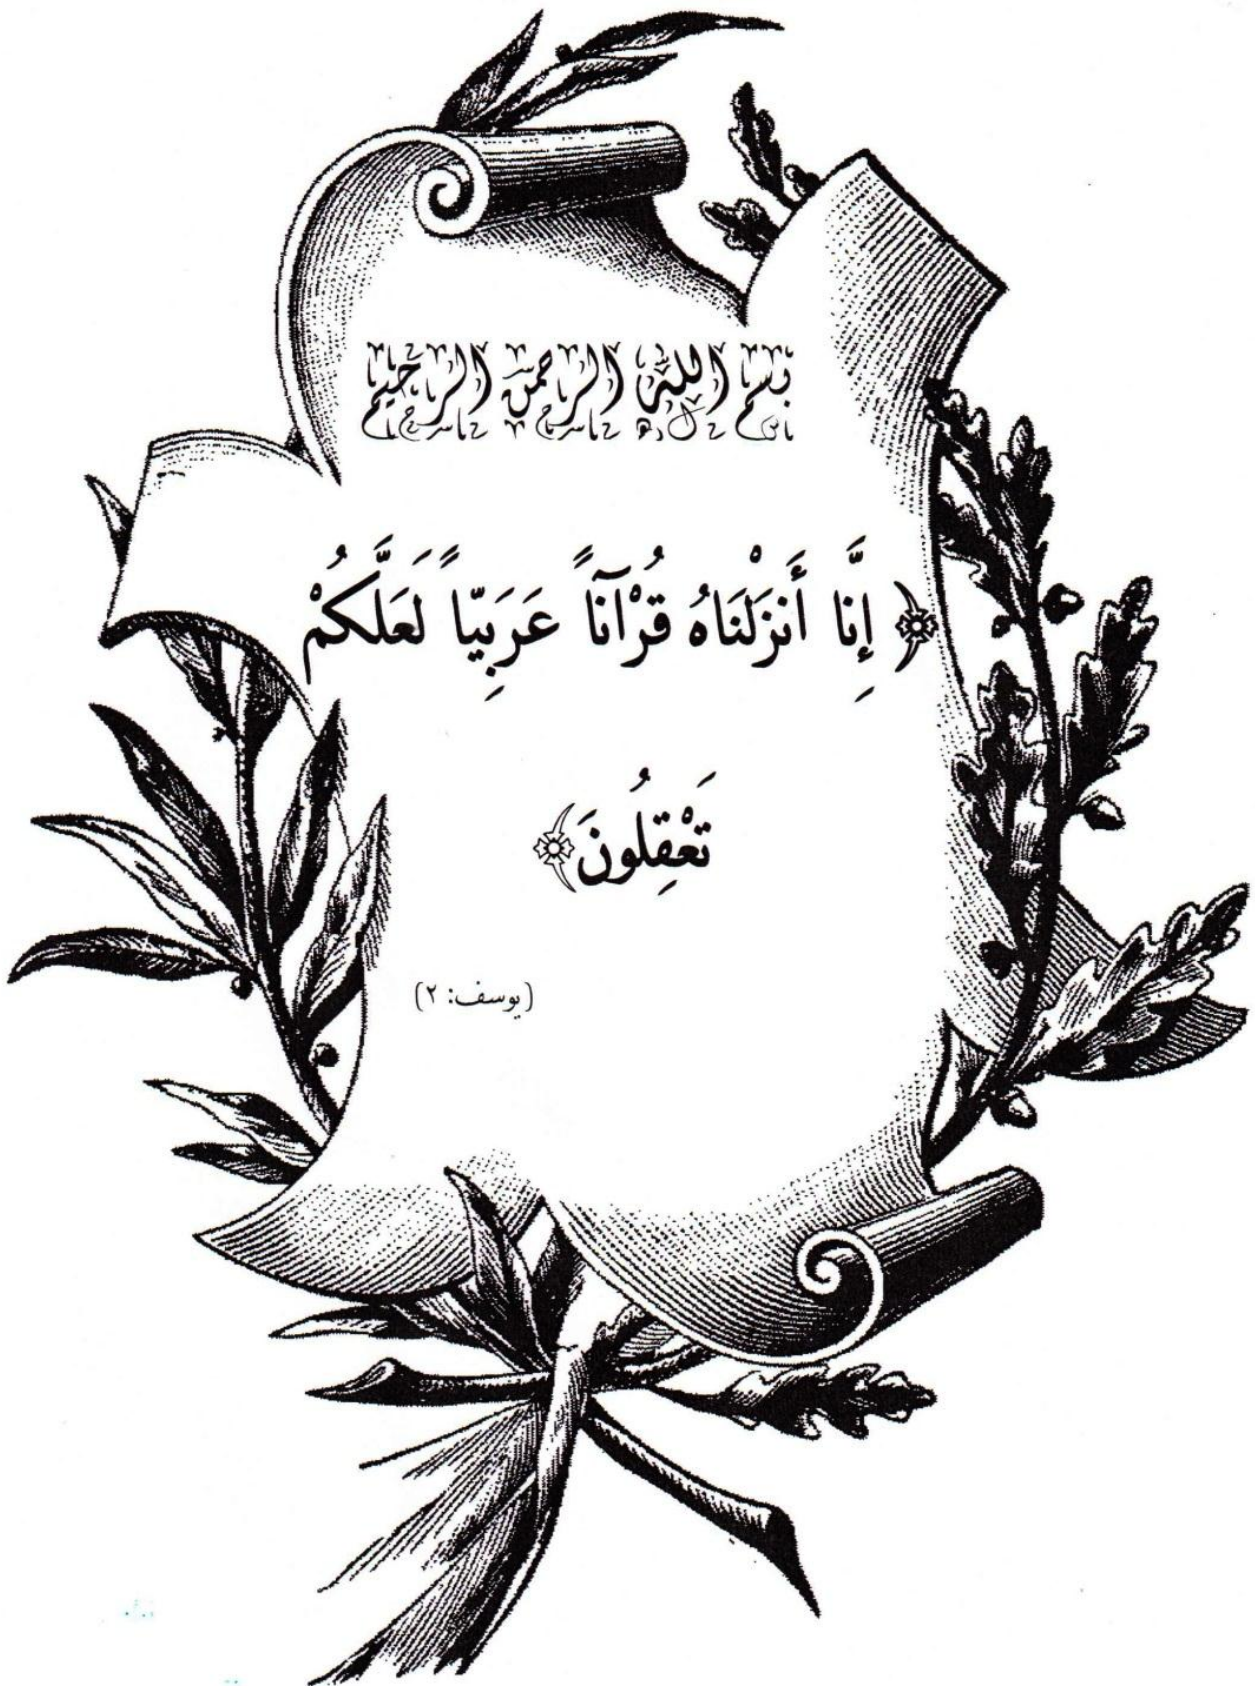 بسم الله الرحمن الرحيم
﴿ إِنَّا أَنزَلْنَاهُ قُرْآنَاً عَرَبِيَّاً لَعَلَّكُمْ
تَعْقِلُونَ﴾
(يوسف: ٢)